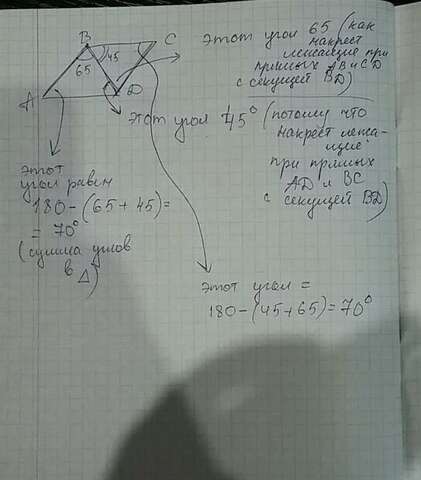 B
C
45
65
A
D
этот угол 65 (как
накрест
лежащие при
прямых AB и CD
с секущей BD)
этот угол 45° (потому что
накрест лежа-
щие
при прямых
AD и BC
с секущей BD)
этот
угол равен
180-(65+45)=
= 70°
(сумма углов
в Δ)
этот угол =
180-(45+65)=70°